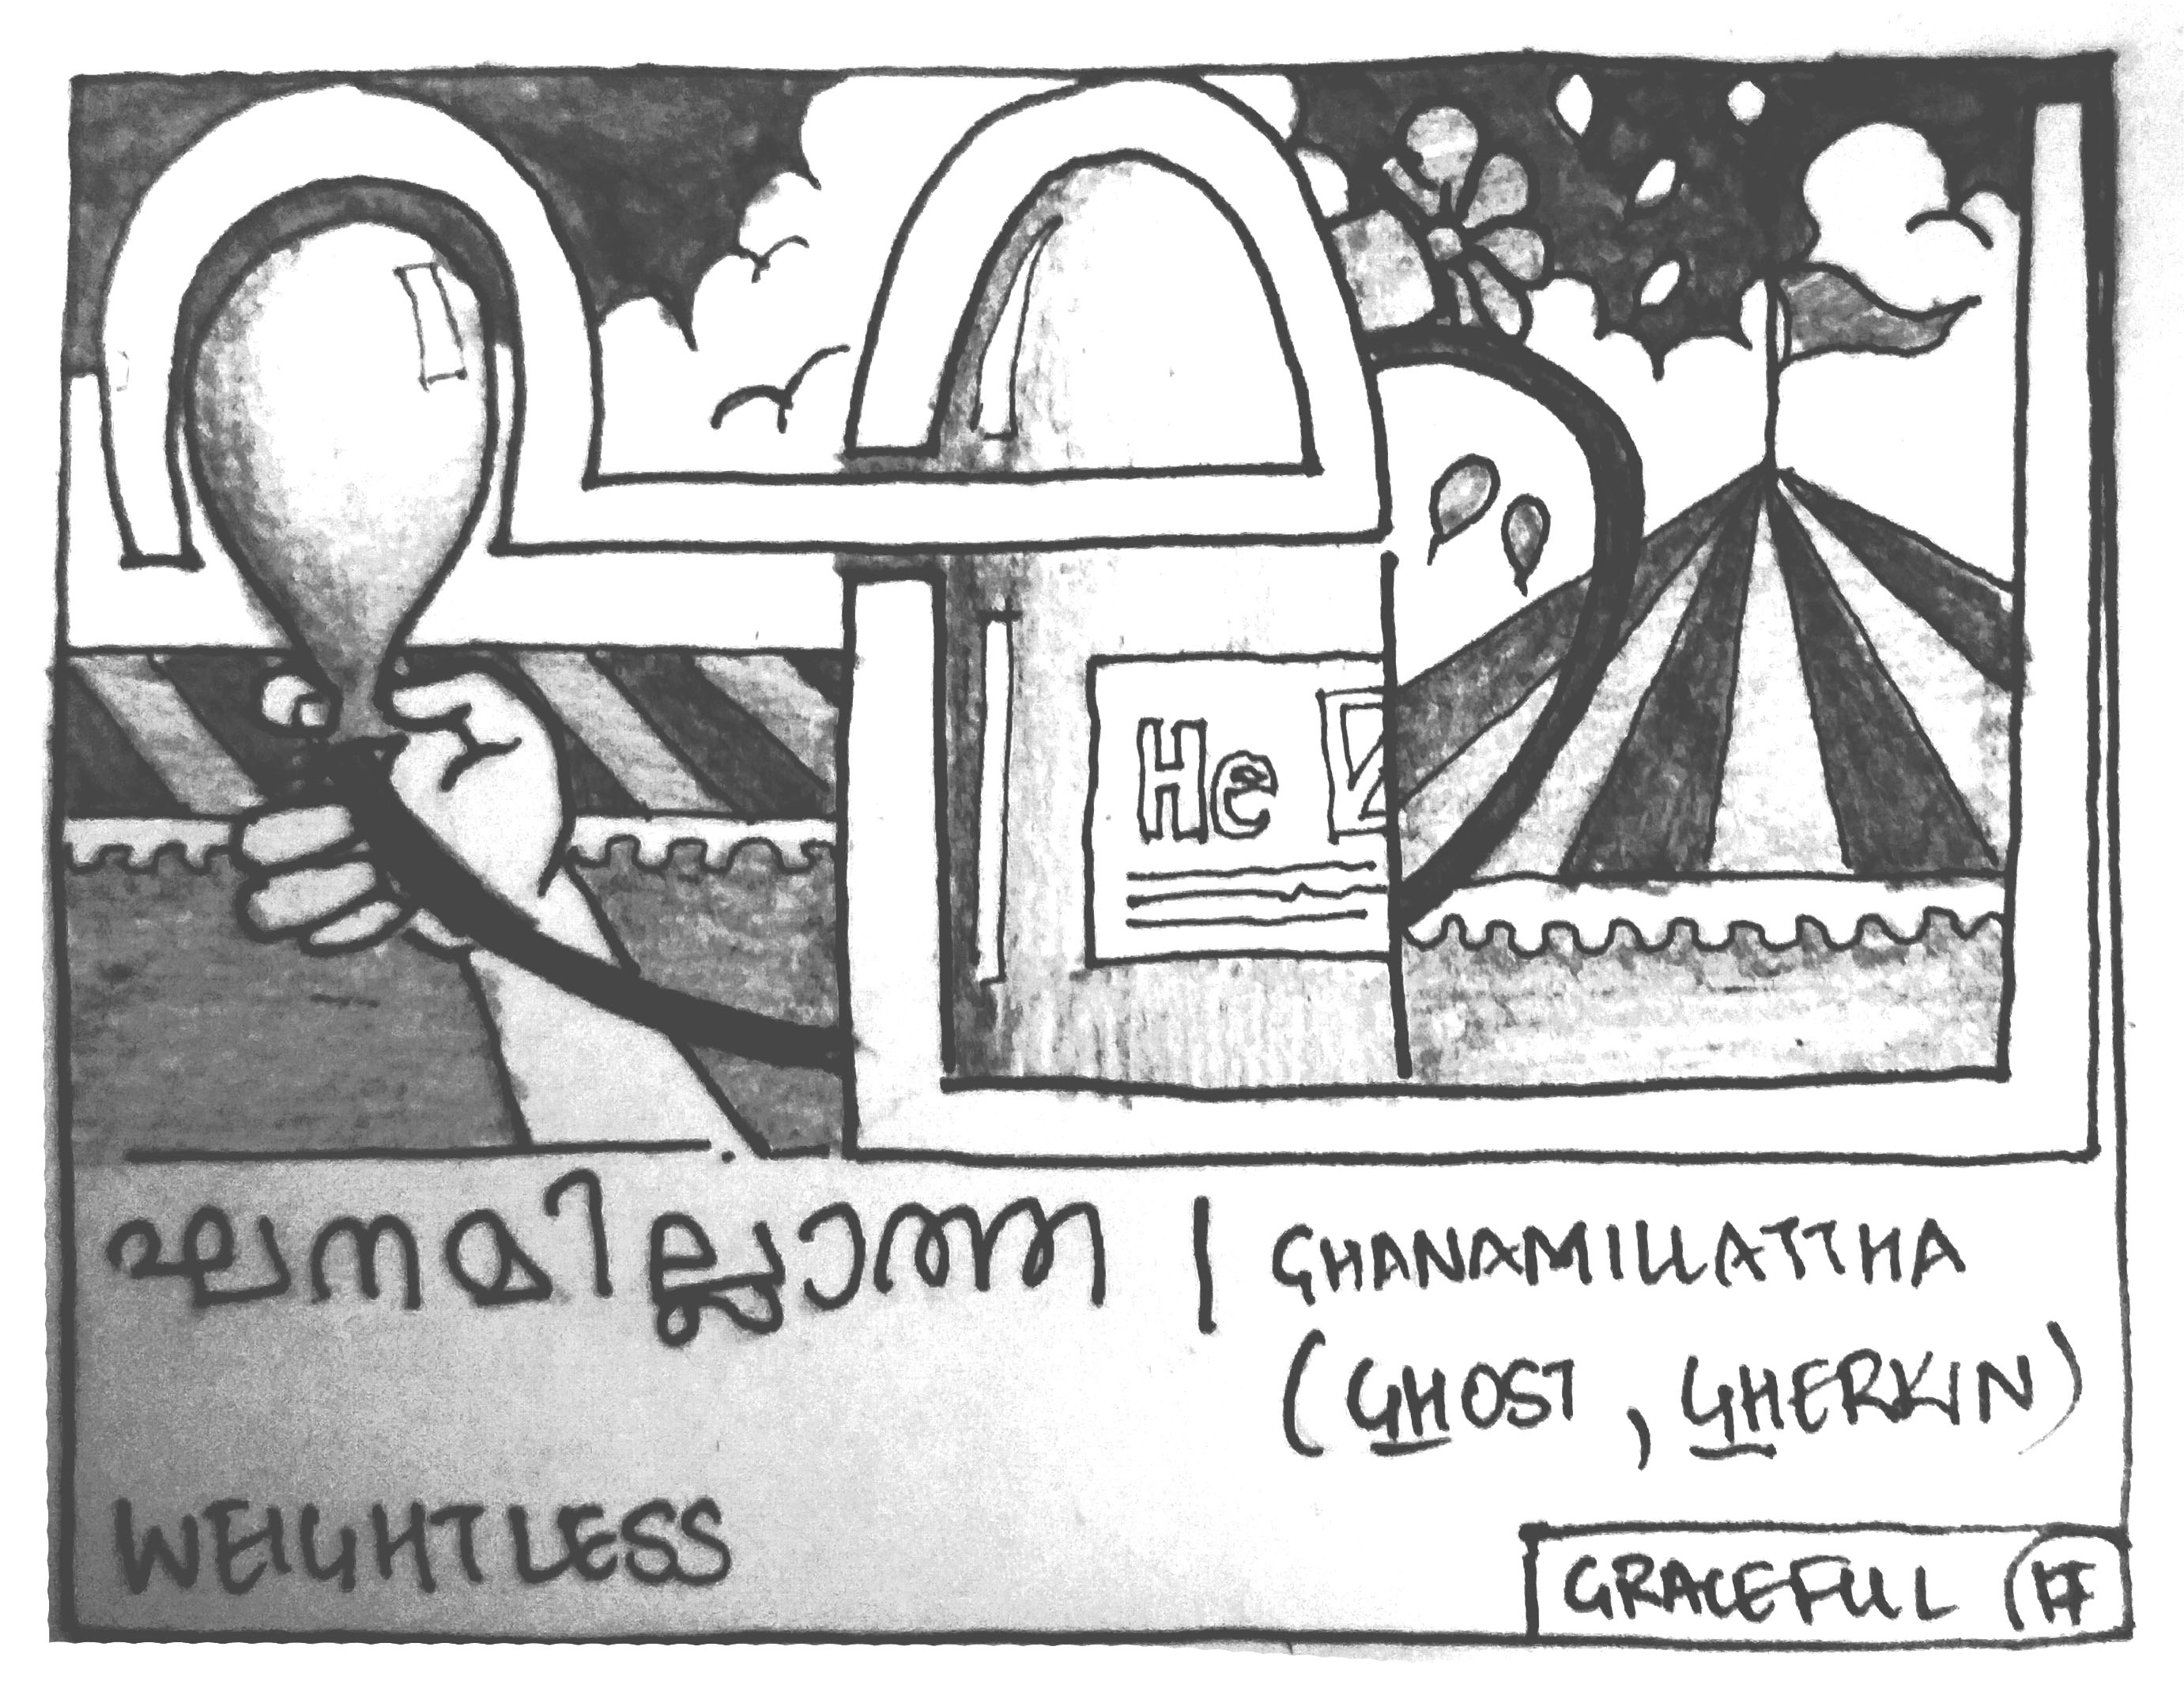 He
ഘനമില്ലാത്ത | GHANAMILLATTHA
(GHOST, GHERKIN)
WEIGHTLESS
GRACEFUL